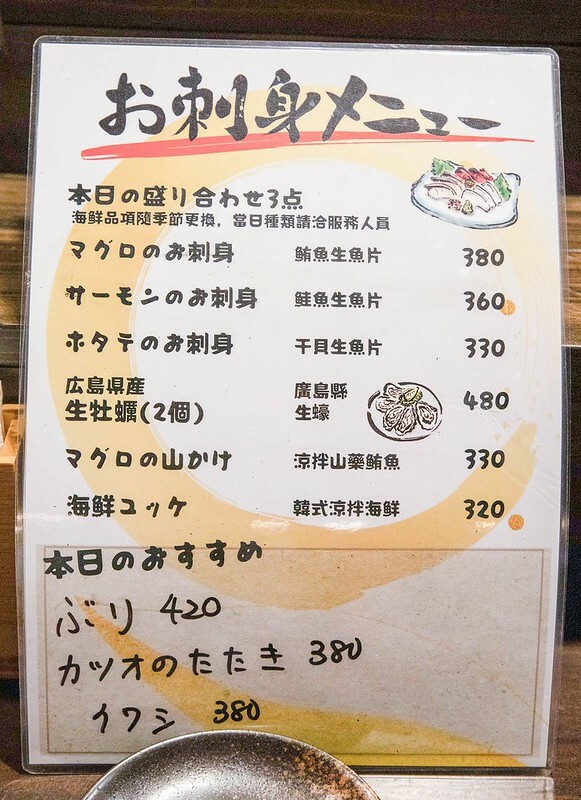 お刺身メニュー
本日の盛り合わせ3点
海鮮品項隨季節更換，當日種類請洽服務人員
マグロのお刺身 鮪魚生魚片 380
サーモンのお刺身 鮭魚生魚片 360
ホタテのお刺身 干貝生魚片 330
広島県産 廣島縣
生牡蠣(2個) 生蠔 480
マグロの山かけ 涼拌山藥鮪魚 330
海鮮ユッケ 韓式涼拌海鮮 320
本日のおすすめ
ぶり 420
カツオのたたき 380
イワシ 380